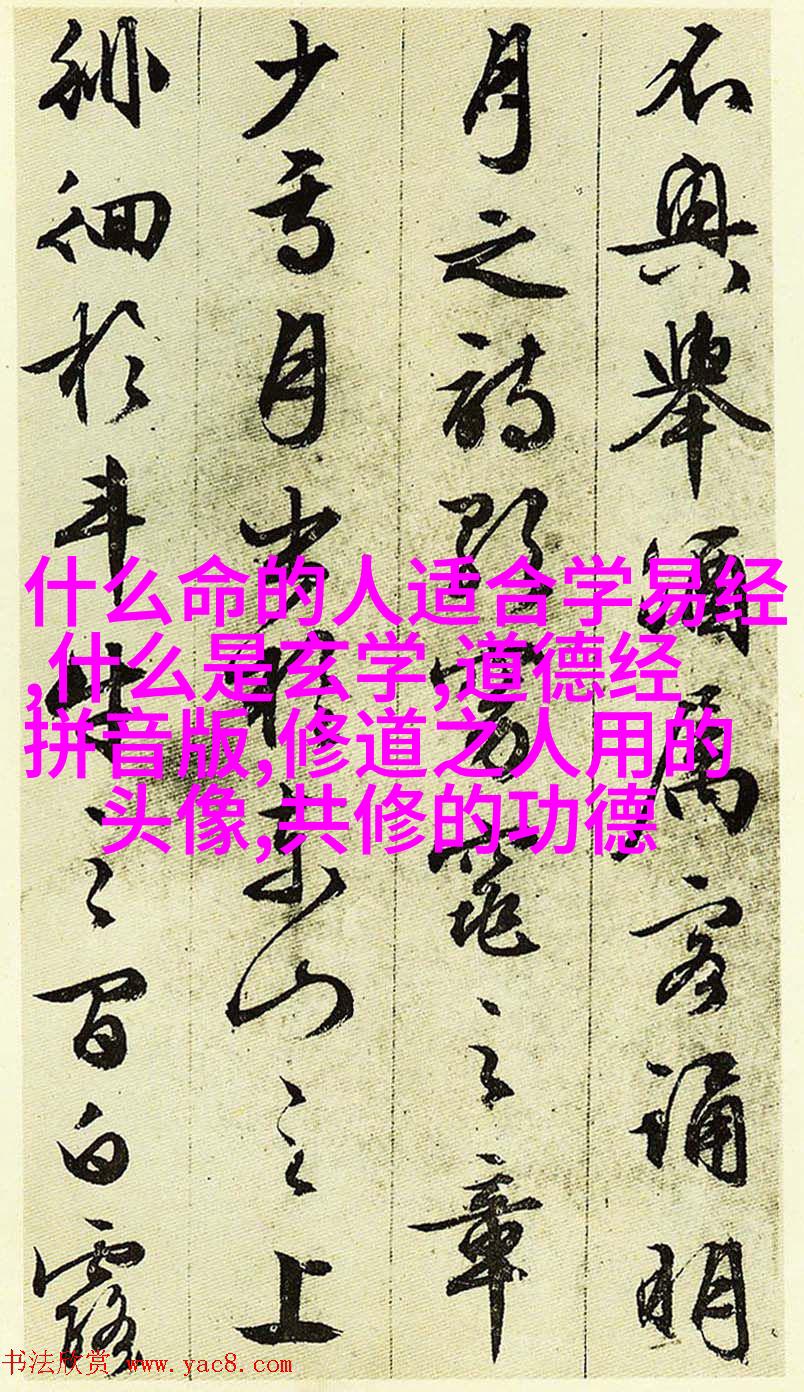 不興舉酒屬客誦明
月之詩歌窈窕之章
少焉月出於東山之上
徘徊於斗牛之間白露
什么命的人适合学易经
,什么是玄学,道德经
拼音版,修道之人用的
头像,共修的功德
书法欣赏 www.yac8.com